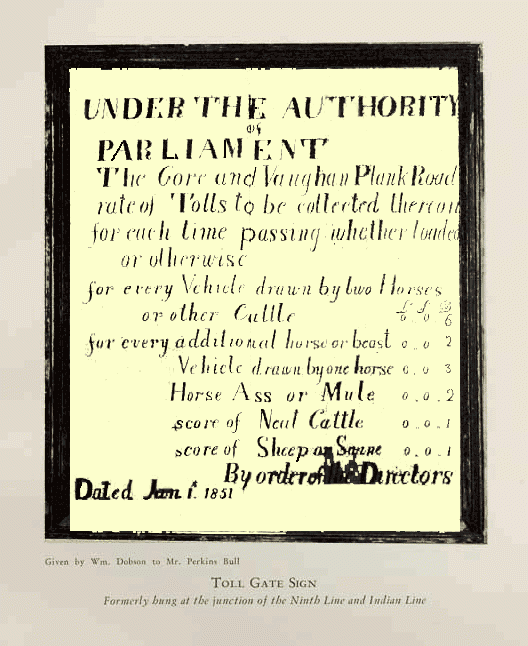 UNDER THE AUTHORITY
of
PARLIAMENT
The Gore and Vaughan Plank Road
rate of Tolls to be collected thereon
for each time passing whether loaded
or otherwise
for every Vehicle drawn by two Horses
or other Cattle £ S D 0 0 6
for every additional horse or beast 0 . 0 2
Vehicle drawn by one horse 0 . 0 3
Horse Ass or Mule 0 . 0 . 2
score of Neat Cattle 0 . 0 . 1
score of Sheep or Swine 0 . 0 . 1
By order of the Directors
Dated Jan 1. 1851
Given by Wm. Dobson to Mr. Perkins Bull
TOLL GATE SIGN
Formerly hung at the junction of the Ninth Line and Indian Line